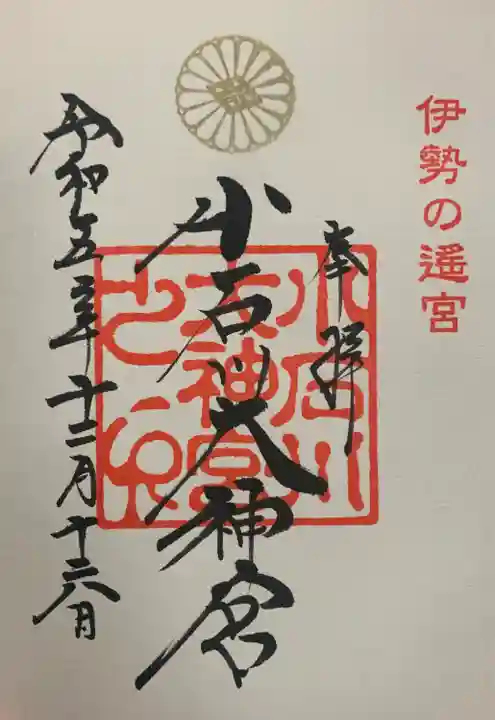 伊勢の遙宮
奉拝
小石川大神宮
令和五年十二月十六日
小石川
大神宮
之印